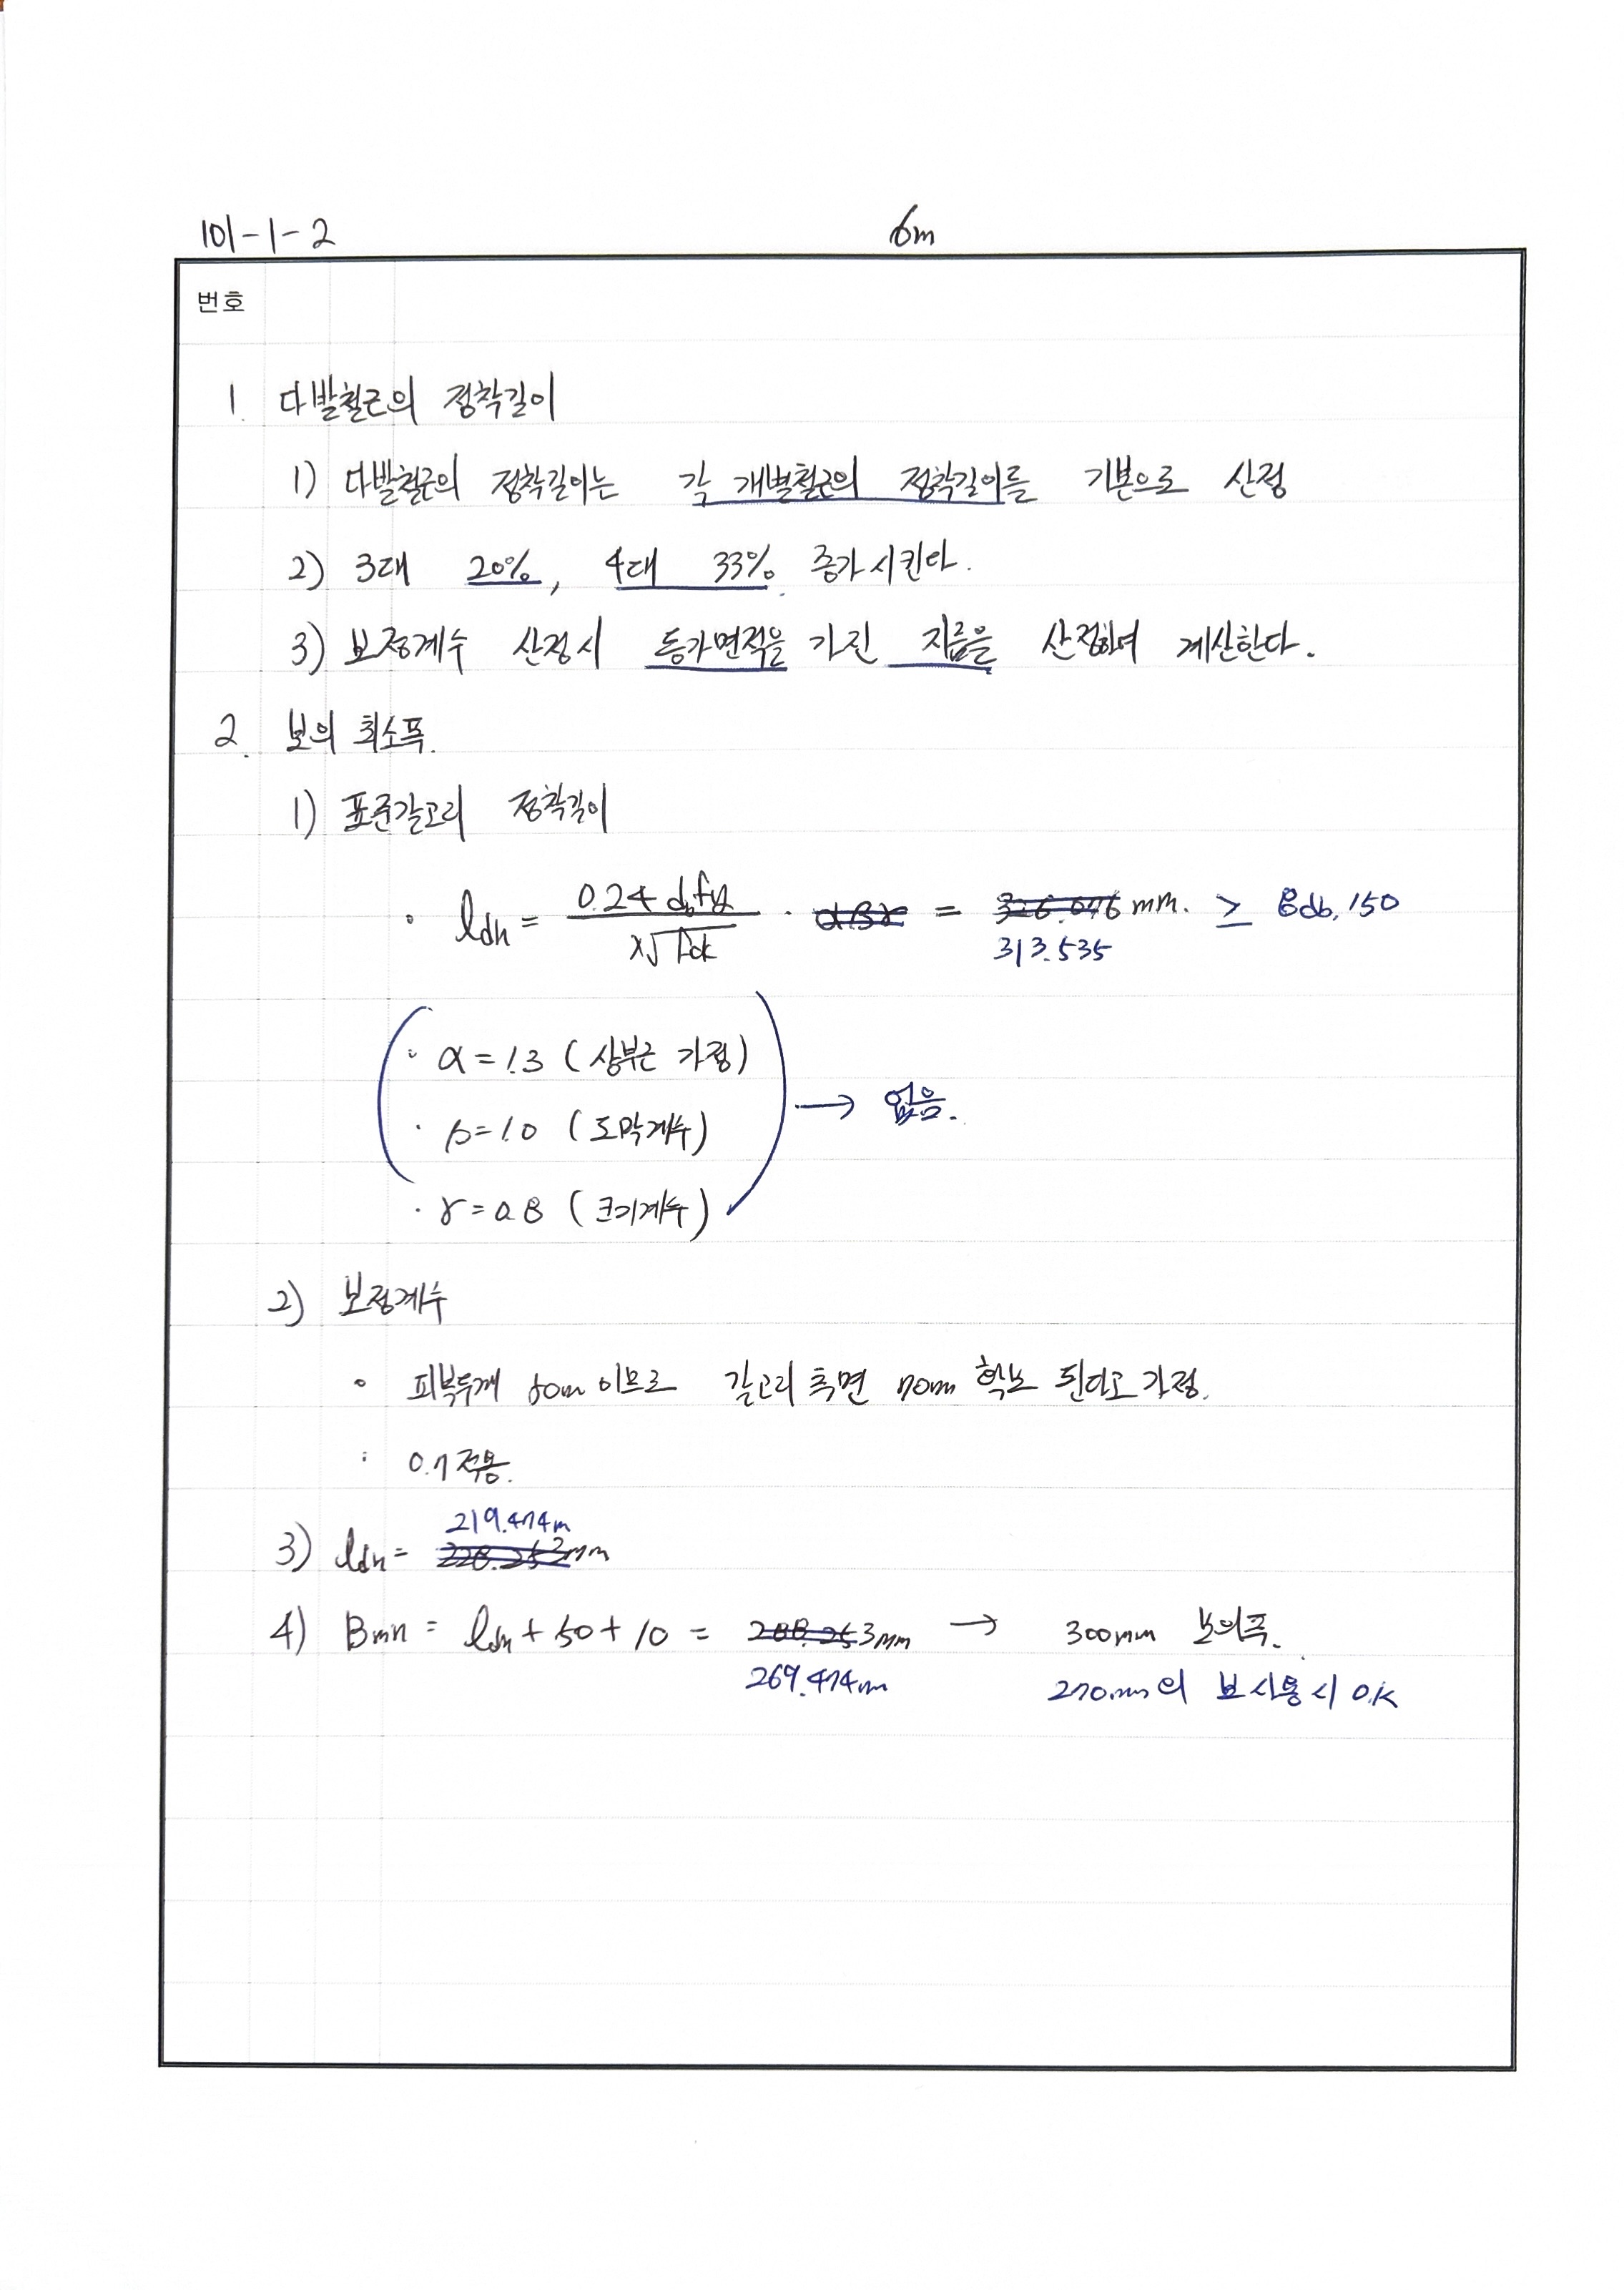 101-1-2
6m
번호
1. 다발철근의 정착길이
1) 다발철근의 정착길이는 각 개별철근의 정착길이를 기본으로 산정
2) 3대 20%, 4대 33% 증가시킨다.
3) 보정계수 산정시 등가면적을 가진 지름을 산정하여 계산한다.
2. 보의 최소폭.
1) 표준갈고리 정착길이
· ldh = 0.24 db fy / λ√fck · αβγ = mm. ≥ 8db, 150
313.535
· α = 1.3 (상부근 가정)
· β = 1.0 (도막계수) → 없음.
· γ = 0.8 (크기계수)
2) 보정계수
· 피복두께 이므로 갈고리 측면 70mm 확보 된다고 가정.
: 0.7 적용.
219.474m
3) ldh = 228.253mm
4) Bmin = ldh + 50 + 10 = 288.253mm → 300mm 보의폭.
269.474m 270mm의 보 사용시 O.K